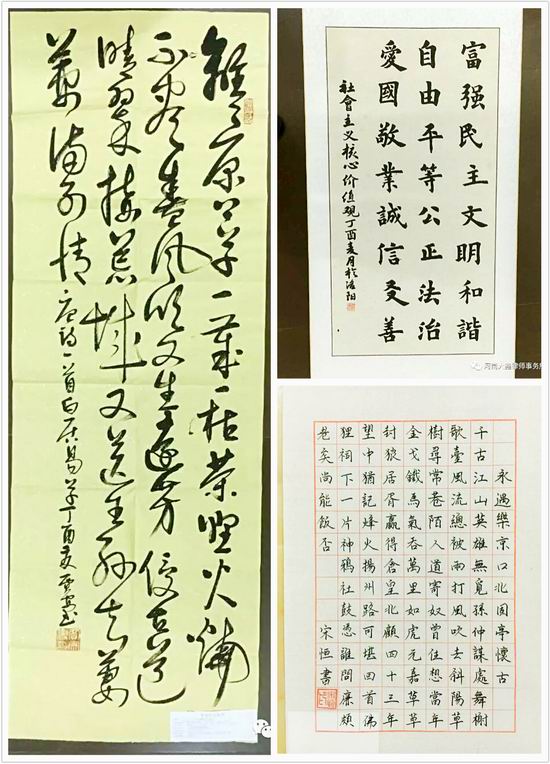 離々原上草一歲一枯榮野火燒
不盡春風吹又生遠芳侵古道
晴翠接荒城又送王孫去萋
萋滿別情
唐詩一首白居易草丁酉夏
富强民主文明和諧
自由平等公正法治
愛國敬業誠信友善
社會主义核心价值观丁酉夏月於洛阳
永遇樂京口北固亭懷古
千古江山英雄無覓孫仲謀處舞榭
歌臺風流總被雨打風吹去斜陽草
樹尋常巷陌人道寄奴曾住想當年
金戈鐵馬氣吞萬里如虎元嘉草草
封狼居胥贏得倉皇北顧四十三年
望中猶記烽火揚州路可堪回首佛
狸祠下一片神鴉社鼓憑誰問廉頗
老矣尚能飯否 宋恒書